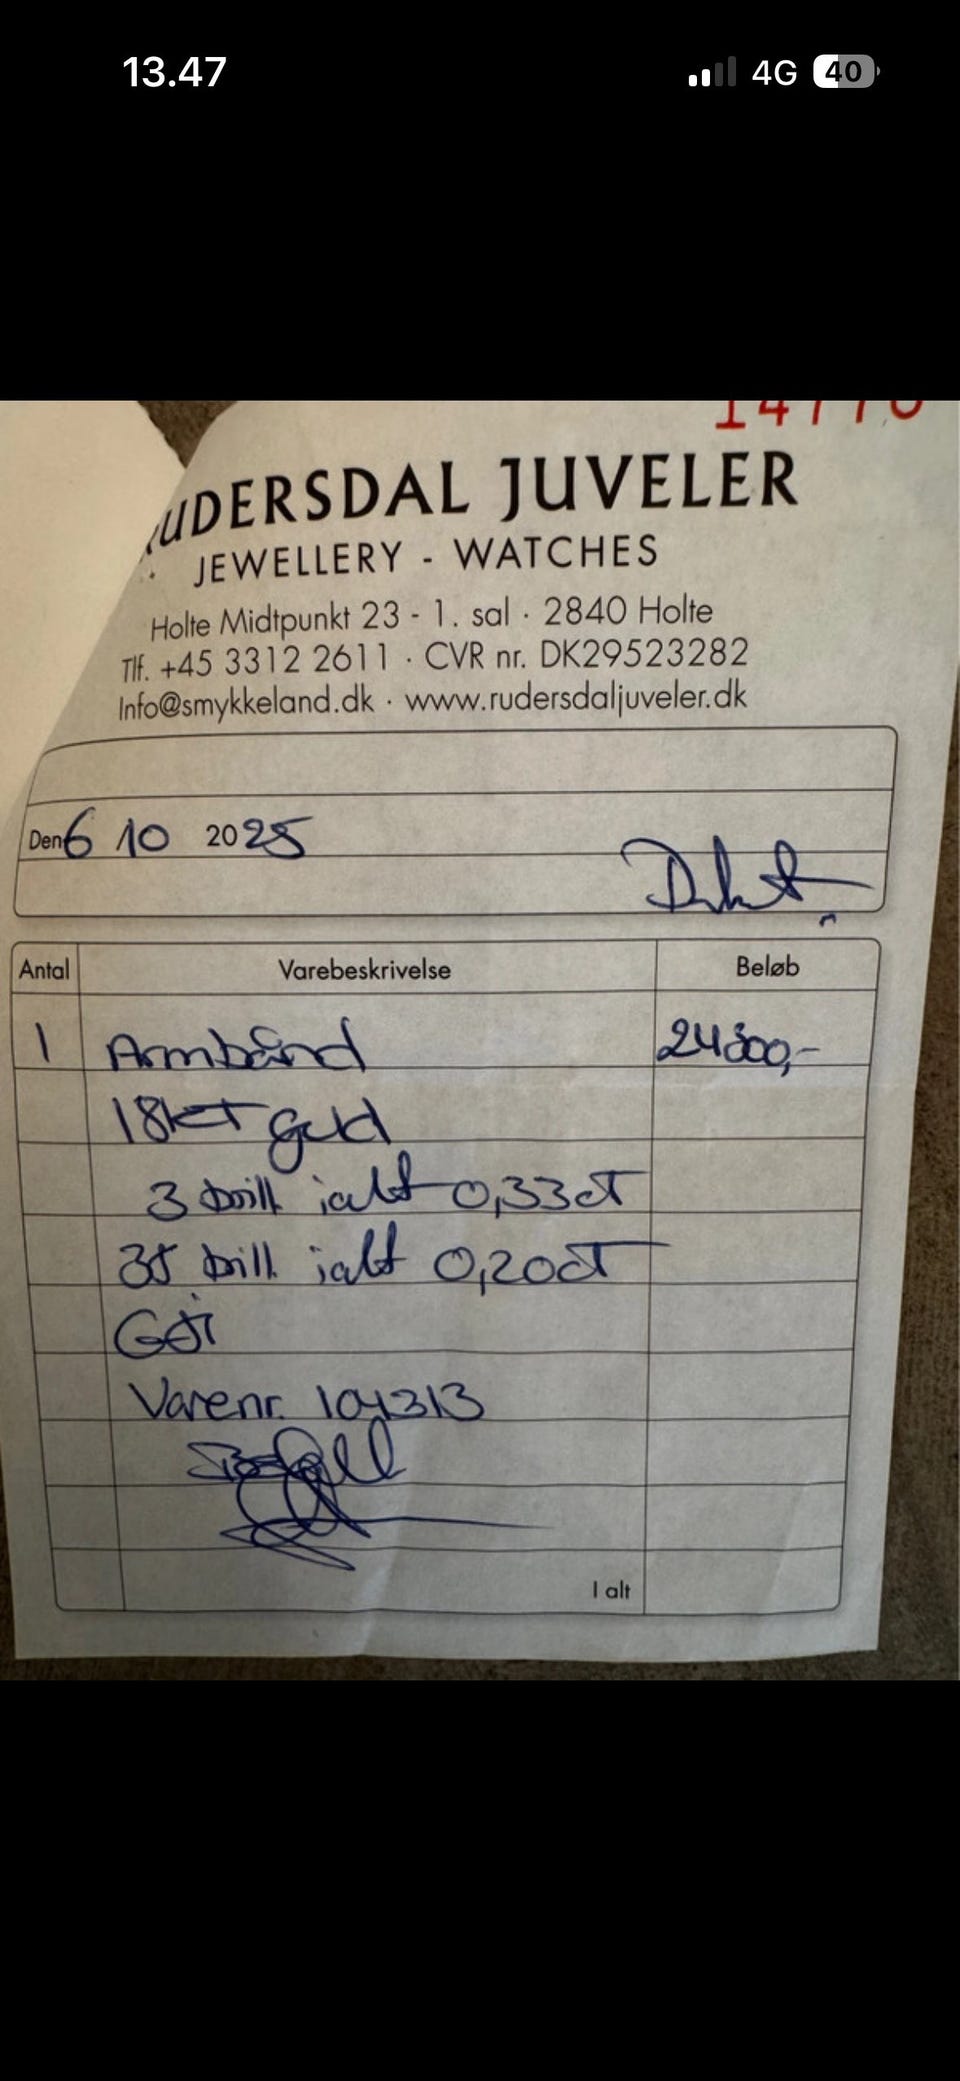 13.47
4G 40
RUDERSDAL JUVELER
JEWELLERY - WATCHES
Holte Midtpunkt 23 - 1. sal · 2840 Holte
Tlf. +45 3312 2611 · CVR nr. DK29523282
Info@smykkeland.dk · www.rudersdaljuveler.dk
Den 6 10 2025
Antal Varebeskrivelse Beløb
1 Armbånd
18kt guld
3 brill ialt 0,33ct
35 brill ialt 0,20ct
Varenr. 104313
I alt